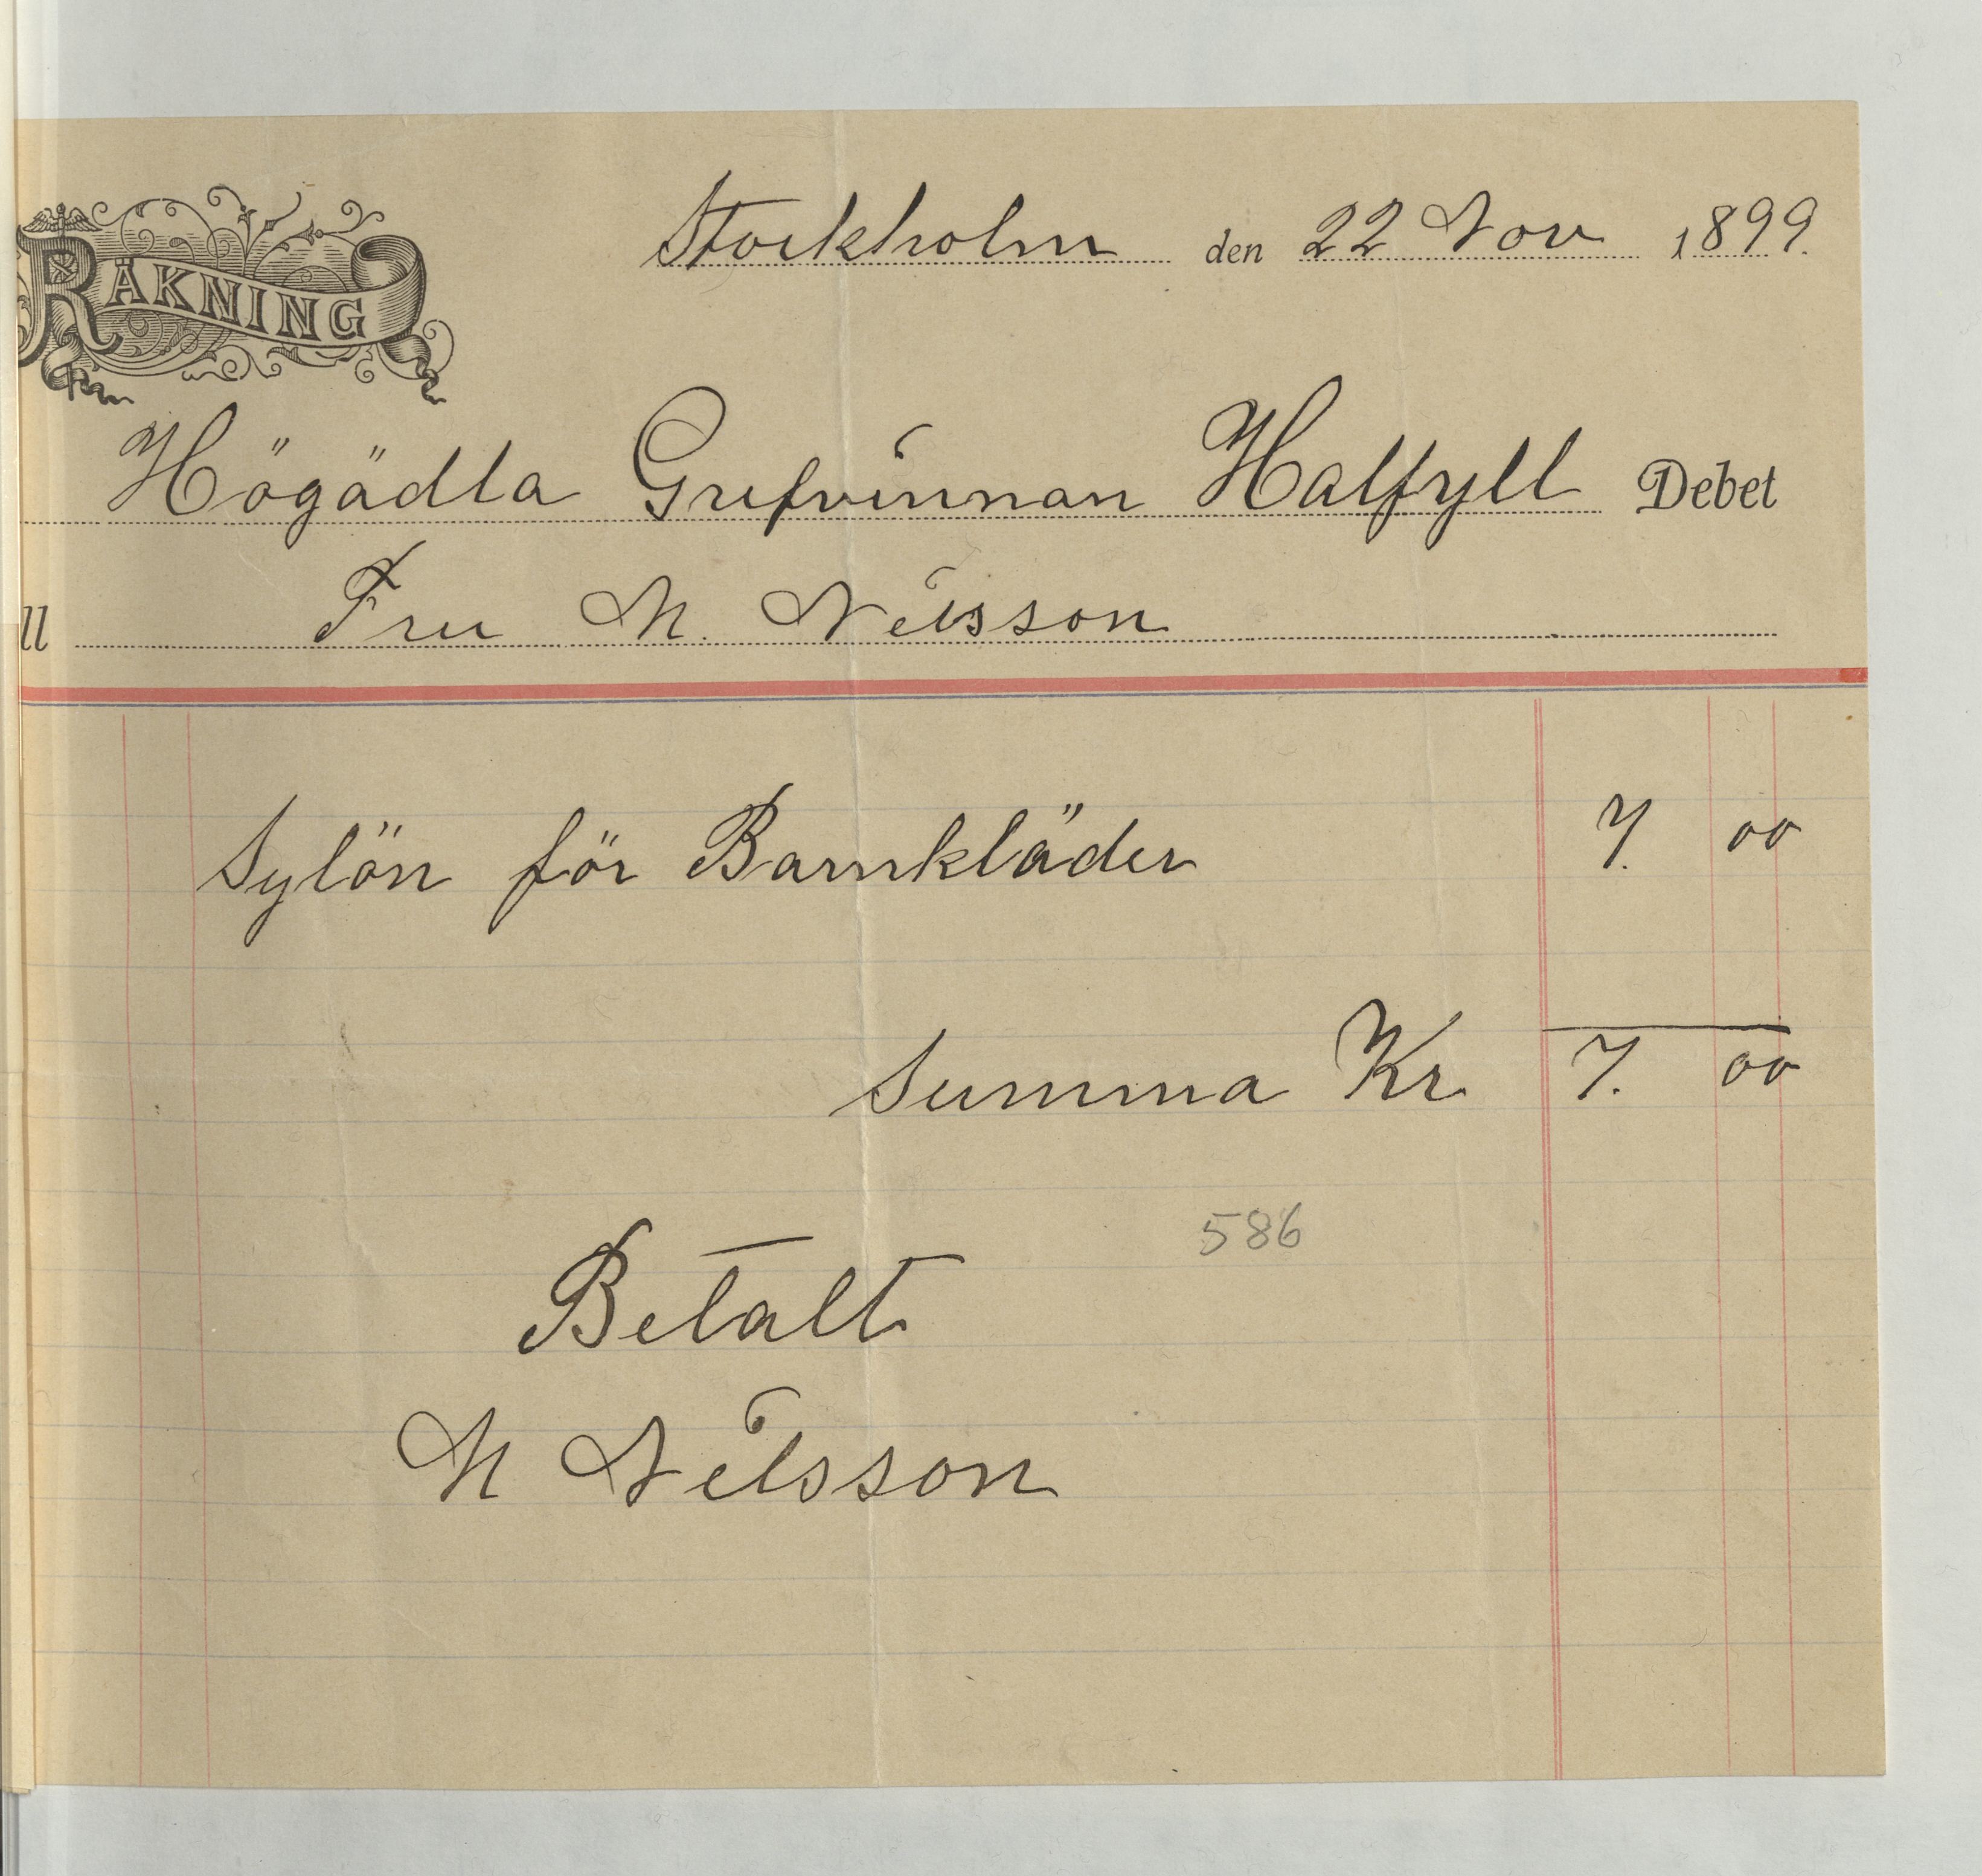 RÄKNING
Stockholm den 22 Nov 1899.
Högädla Grefvinnan Halfyll Debet
ll Fru M. Nilsson
Sylön för Barnkläder 7. 00
Summa Kr 7. 00
586
Betalt
M Nilsson